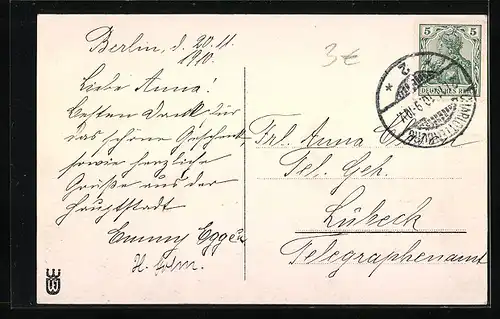 Berlin, d. 20.11.
1910.
Liebe Anna!
Besten Dank für
das schöne Geschenk,
sowie herzliche
Grüße aus der
Hauptstadt
Emmy
H.
3€
5 5
DEUTSCHES REICH
CHARLOTTENBURG
* 2 *
Frl. Anna
Tel. Geh.
Lübeck
Telegraphenamt